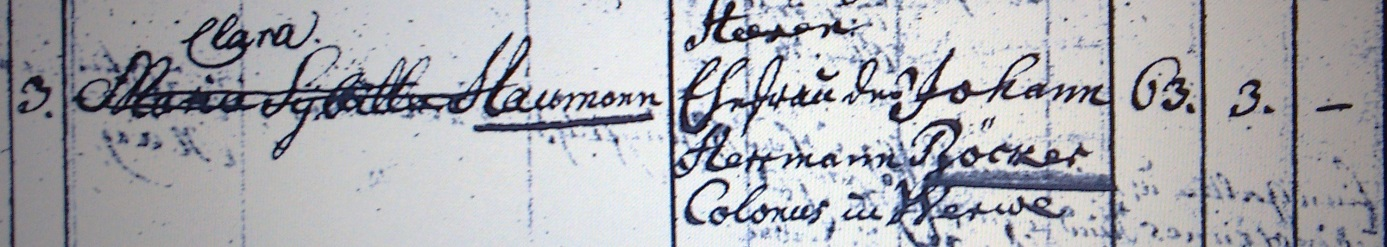 Clara.
3. Maria Sybilla Haumann
Heeren
Ehefrau des Johann 63. 3. —
Herrmann Böcker
Colonus in Werwe